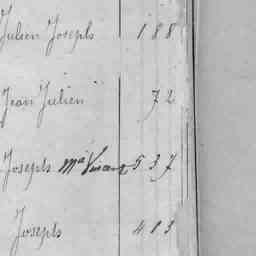 Julien Joseph 188
Jean Julien 72
Joseph 537
Joseph 483